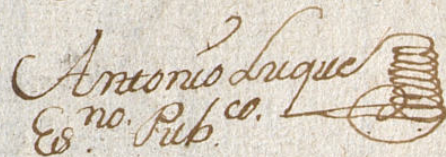 Antonio Luque
Es.no Pub.co